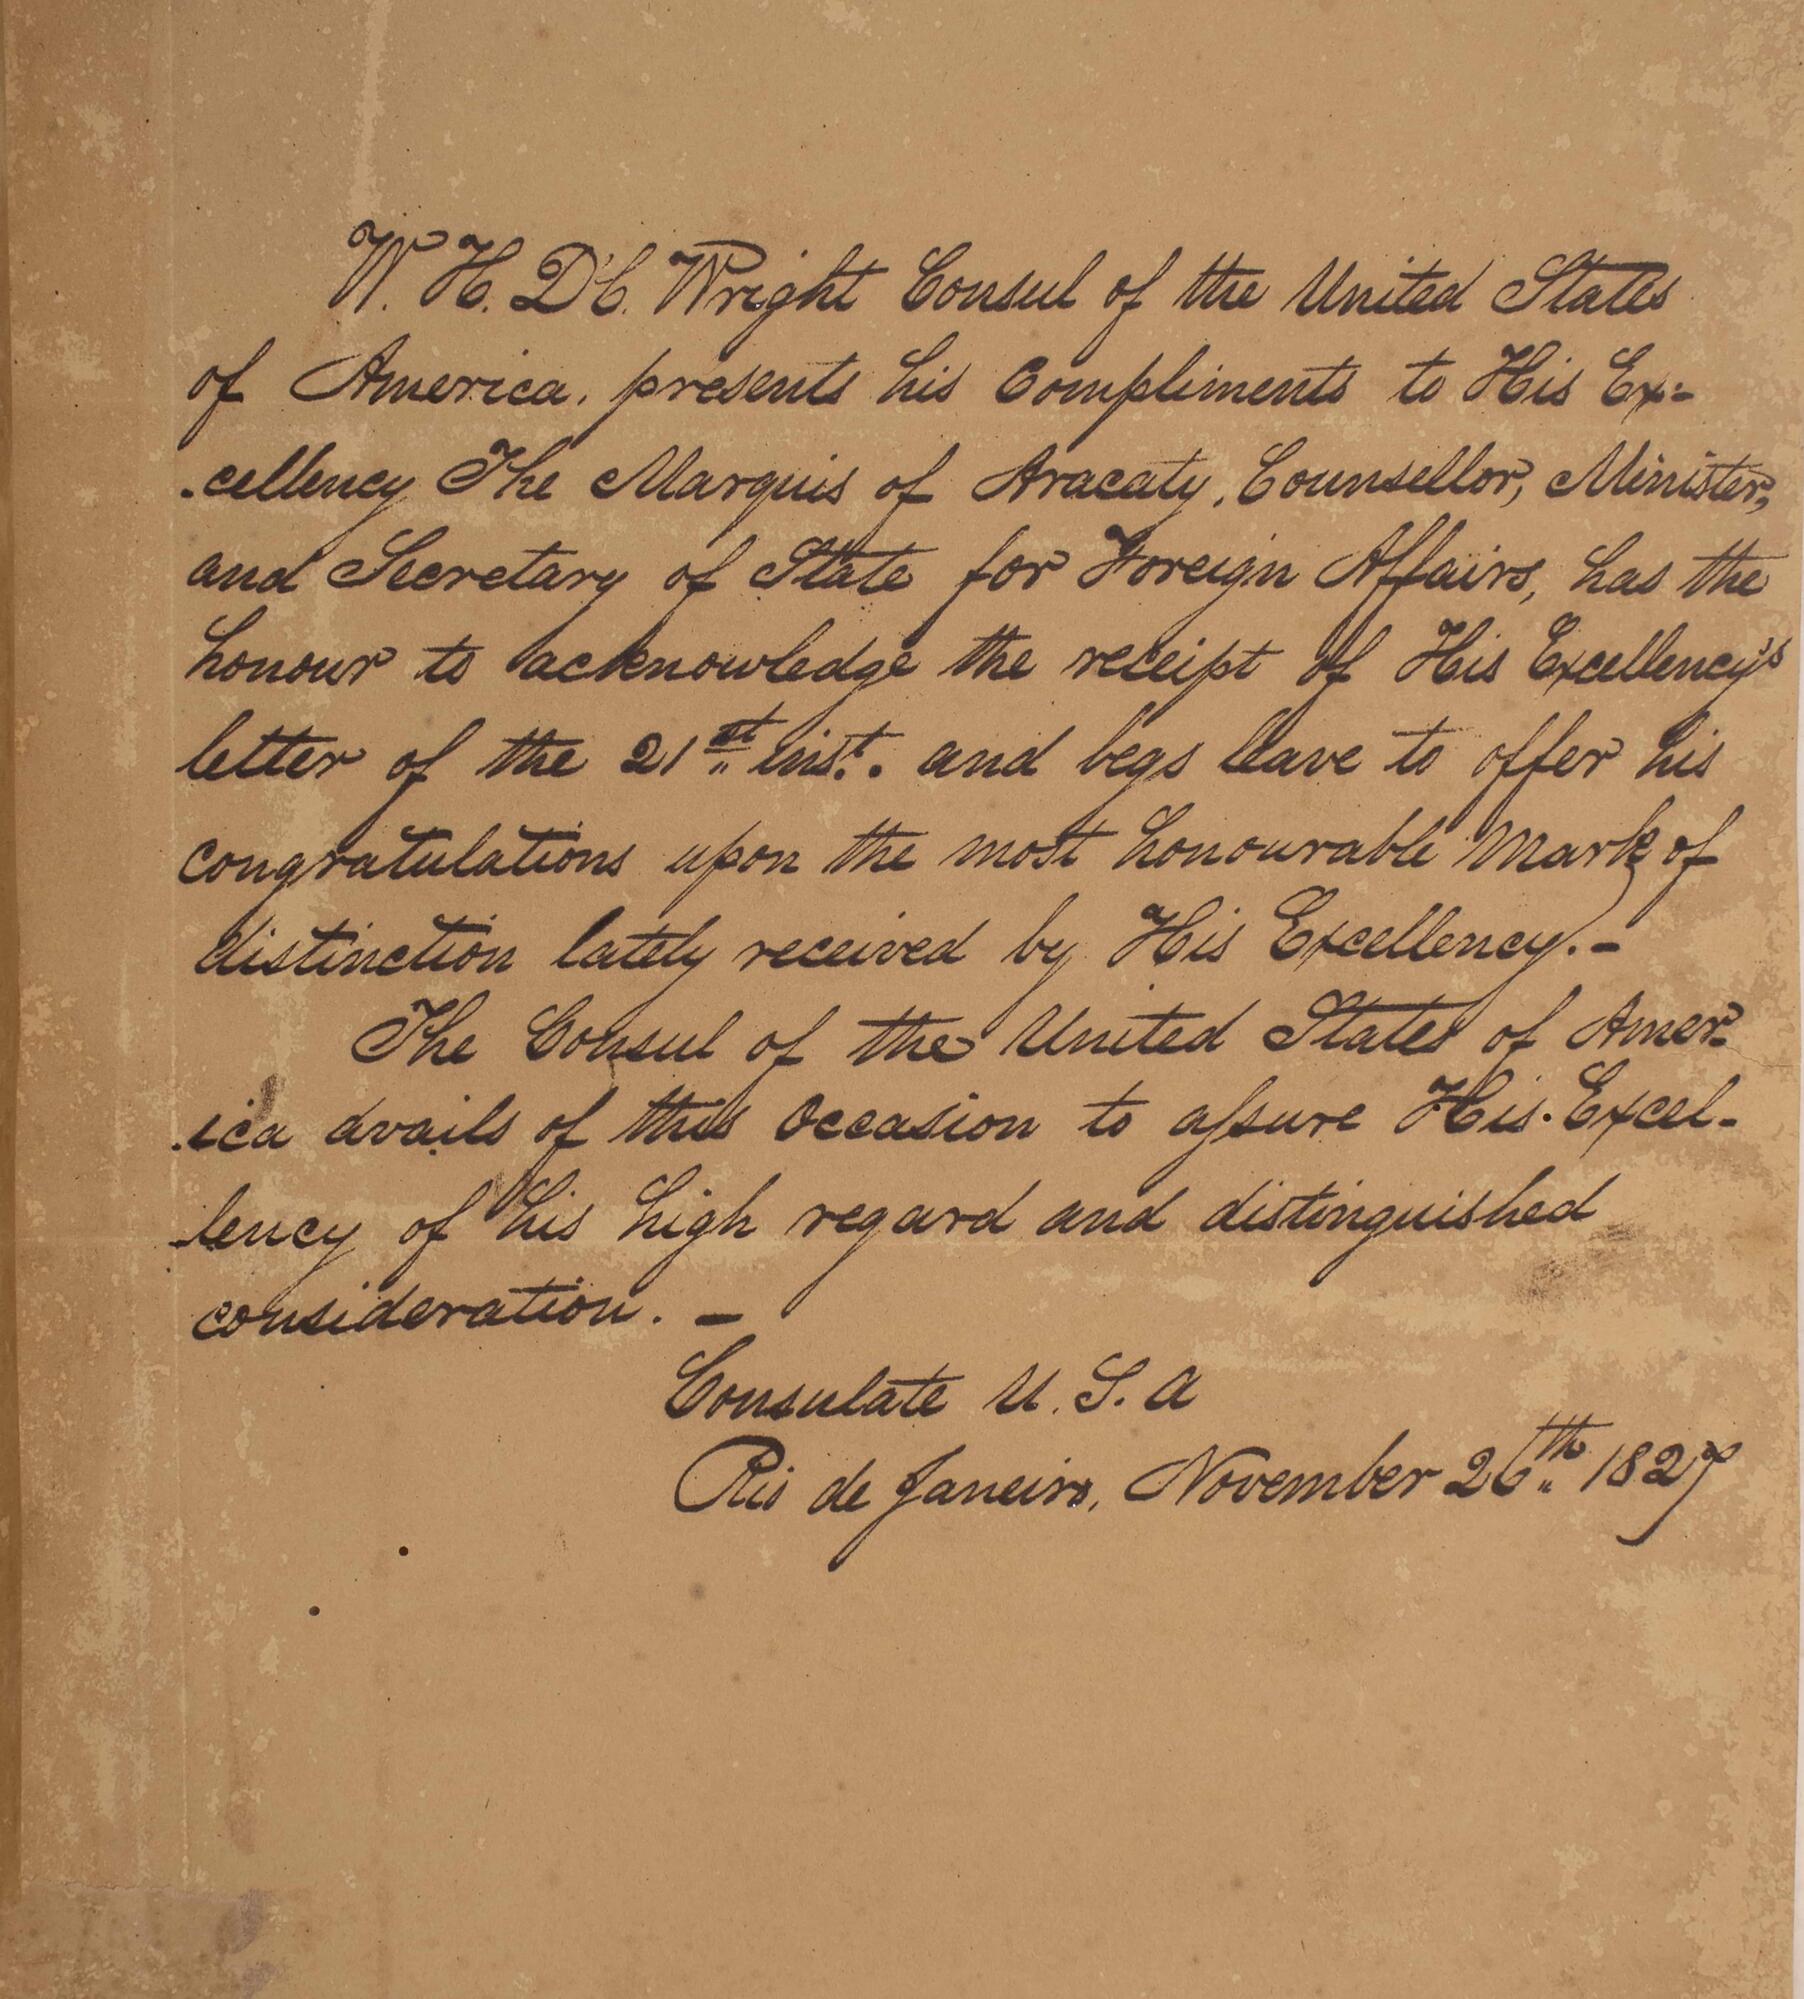 W. H. D'C. Wright Consul of the United States
of America, presents his Compliments to His Ex-
-cellency The Marquis of Aracaty, Counsellor, Minister,
and Secretary of State for Foreign Affairs, has the
honour to acknowledge the receipt of His Excellency's
letter of the 21st inst. and begs leave to offer his
congratulations upon the most honourable Mark of
distinction lately received by His Excellency.-
The Consul of the United States of Amer-
-ica avails of this Occasion to aſsure His Excel-
-lency of his high regard and distinguished
consideration. -
Consulate U. S. A
Rio de Janeiro, November 26th 1827